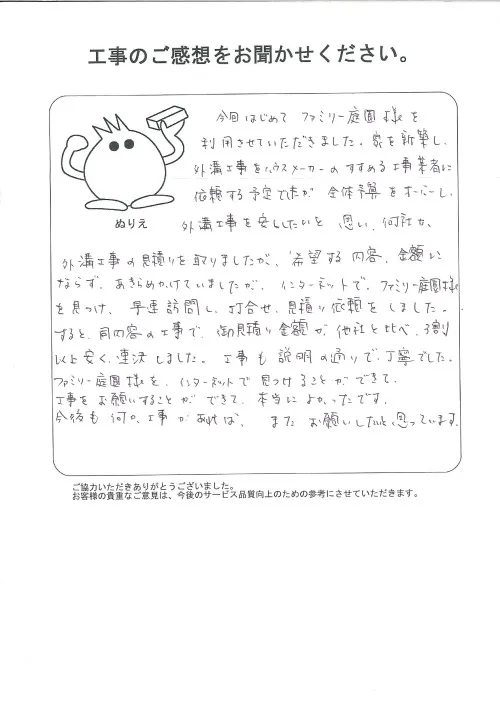 工事のご感想をお聞かせください。
今回はじめて ファミリー庭園様を
利用させていただきました。家を新築し、
外溝工事をハウスメーカーのすすめる工事業者に
依頼する予定でしたが 全体予算をオーバーし、
ぬりえ
外溝工事を安くしたいと 思い、何社か、
外溝工事の見積りを取りましたが、希望する内容、金額に
ならず、あきらめかけていましたが、インターネットで、ファミリー庭園様
を見つけ、早速訪問し、打合せ、見積り依頼をしました。
すると、同内容の工事で、御見積り金額が、他社と比べ、3割
以上安く、速決しました。工事も説明の通りで、丁寧でした。
ファミリー庭園様を、インターネットで見つけることができて、
工事をお願いすることができて、本当によかったです。
今後も何か、工事があれば、またお願いしたいと思っています。
ご協力いただきありがとうございました。
お客様の貴重なご意見は、今後のサービス品質向上のための参考にさせていただきます。